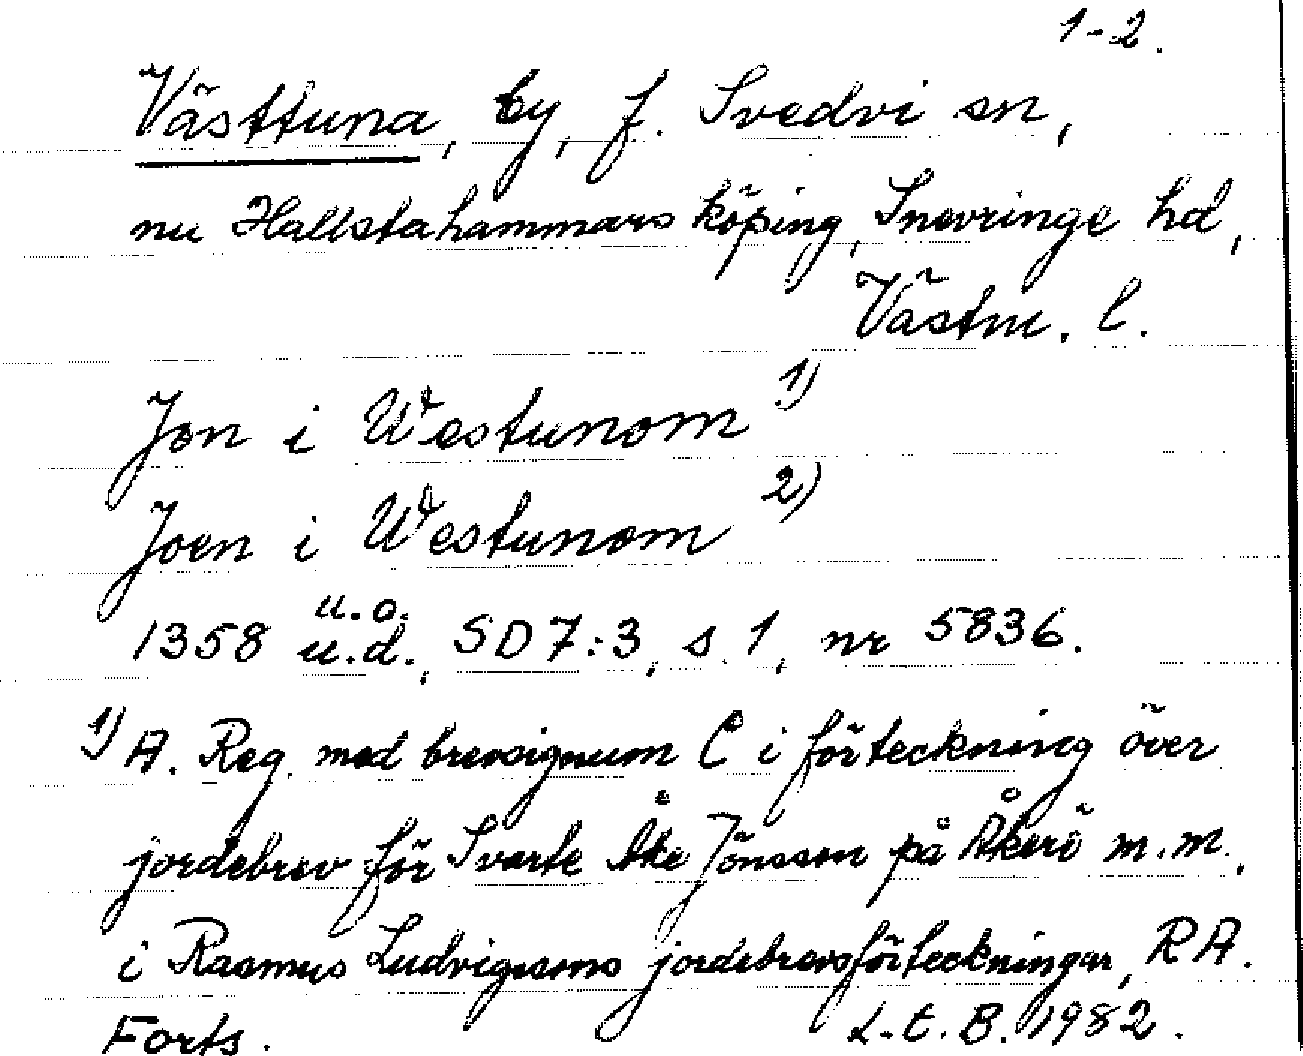 1-2.
Västtuna, by, f. Svedvi sn,
nu Hallstahammars köping, Snevringe hd,
Västm. l.
Jon i Westunom 1)
Joen i Westunom 2)
u.o.
1358 u.d., SD 7:3, s. 1, nr 5836.
1) A. Reg. med brevsignum C i förteckning över
jordebrev för Svarte Åke Jönsson på Åkerö m.m.,
i Rasmus Ludvigssons jordebrevsförteckningar, RA.
Forts. L.E.B. 1982.